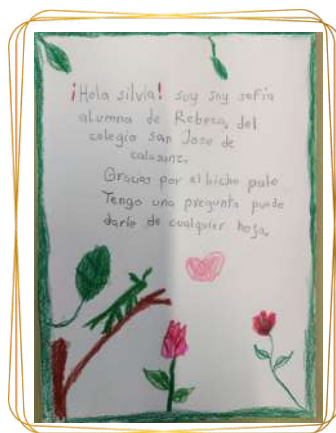 ¡Hola silvia! soy soy sofia
alumna de Rebeca, del
colegio san Jose de
calasanz.
Gracias por el bicho palo
Tengo una pregunta puedo
darle de cualquier hoja.